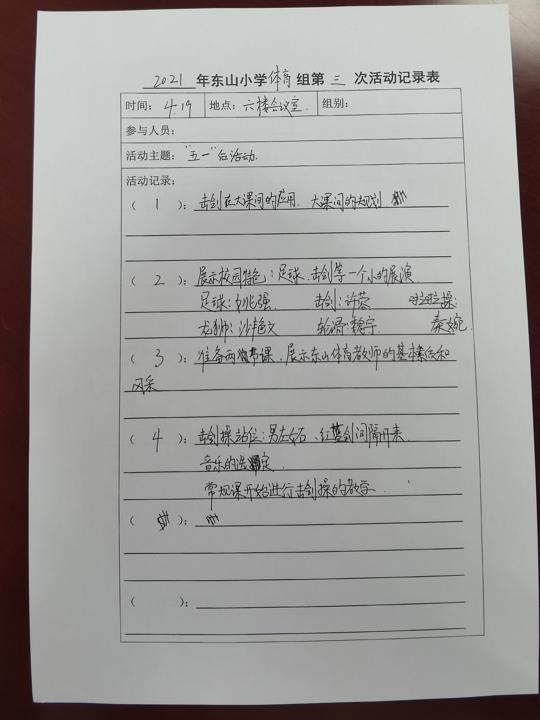 2021 年东山小学体育组第 三 次活动记录表
时间: 4.19 地点: 六楼会议室 组别:
参与人员:
活动主题: "五一"后活动.
活动记录:
( 1 ): 击剑在大课间的应用. 大课间的规划
( 2 ): 展示校园特色: 足球、击剑等一个小的展演
足球: 强 击剑: 许蓉 啦啦操:
龙狮: 沙艳文 轮滑: 魏宇 秦婉
( 3 ): 准备两节课, 展示东山体育教师的基本素养和
风采
( 4 ): 击剑操站位: 男左女右、红蓝剑间隔开来
音乐的选定
常规课开始进行击剑操的教学.
( ):
( ):